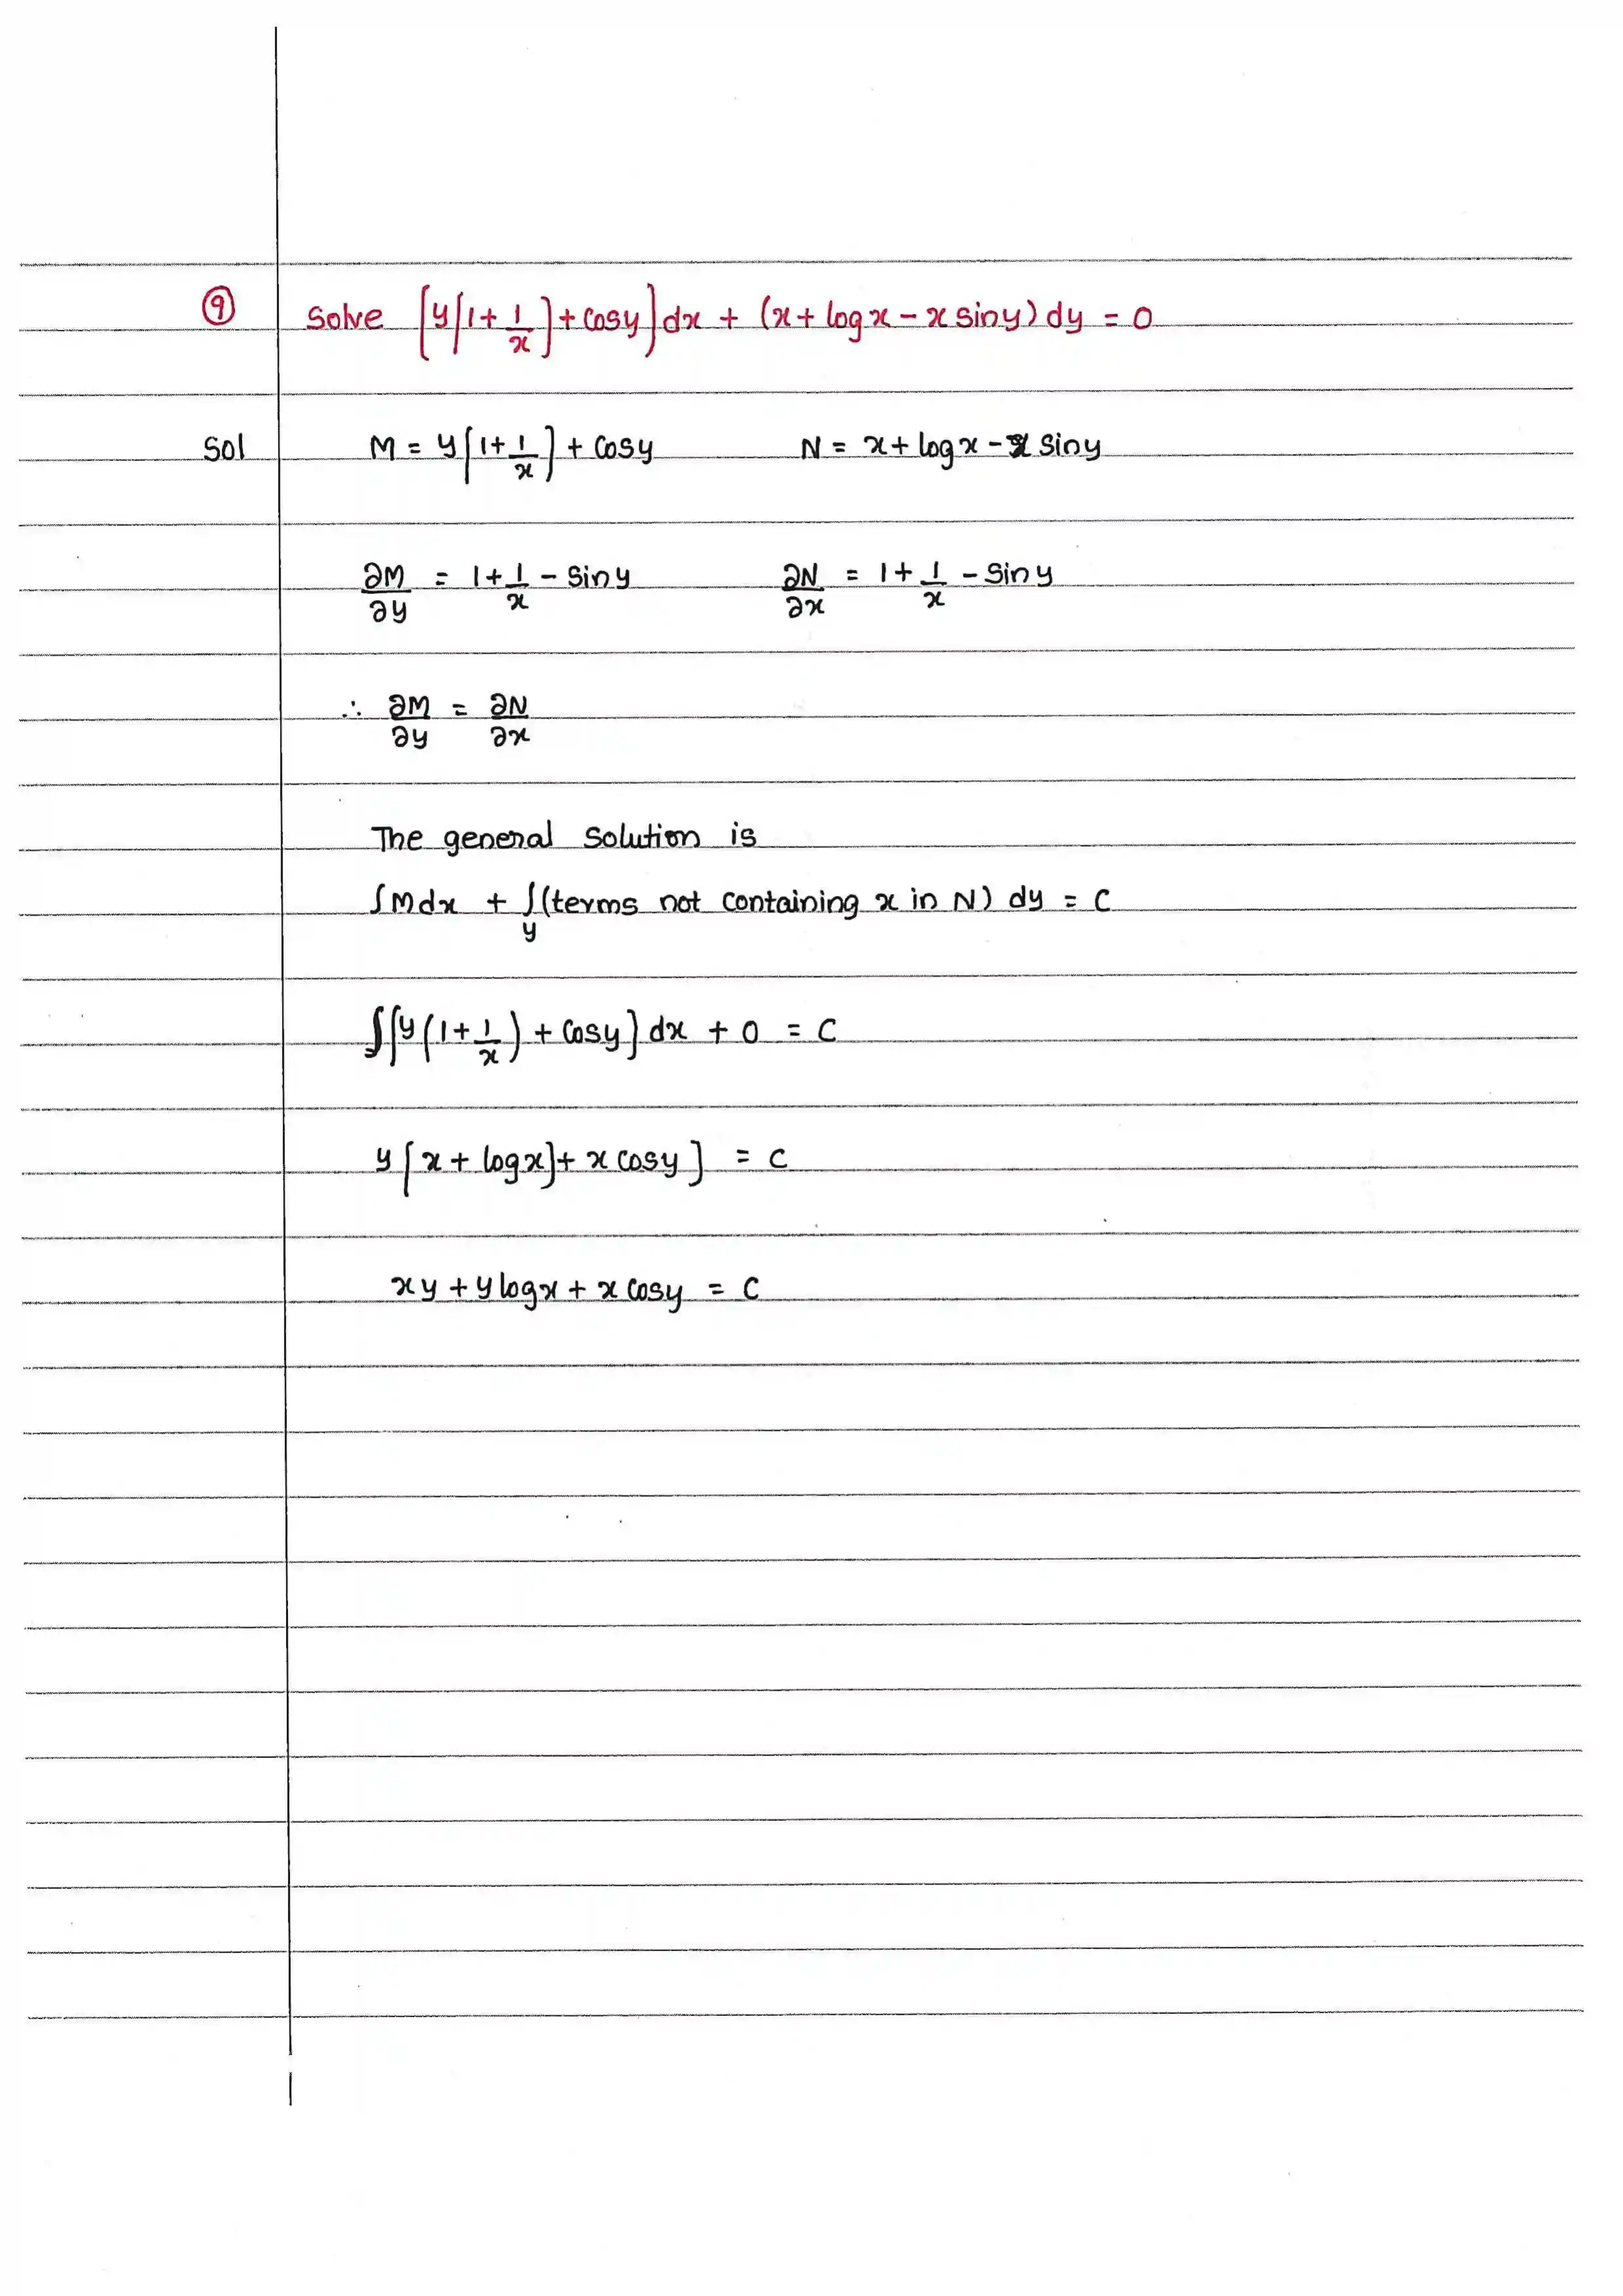 ⑨ Solve [y[1+1/x]+cosy]dx + (x+logx-xsiny)dy = 0
Sol M = y[1+1/x]+cosy N = x+logx-x siny
∂M/∂y = 1+1/x-siny ∂N/∂x = 1+1/x-siny
∴ ∂M/∂y = ∂N/∂x
The general solution is
∫Mdx + ∫y(terms not containing x in N) dy = C
∫[y(1+1/x)+cosy]dx + 0 = C
y[x+logx]+xcosy] = C
xy+ylogx+xcosy = C